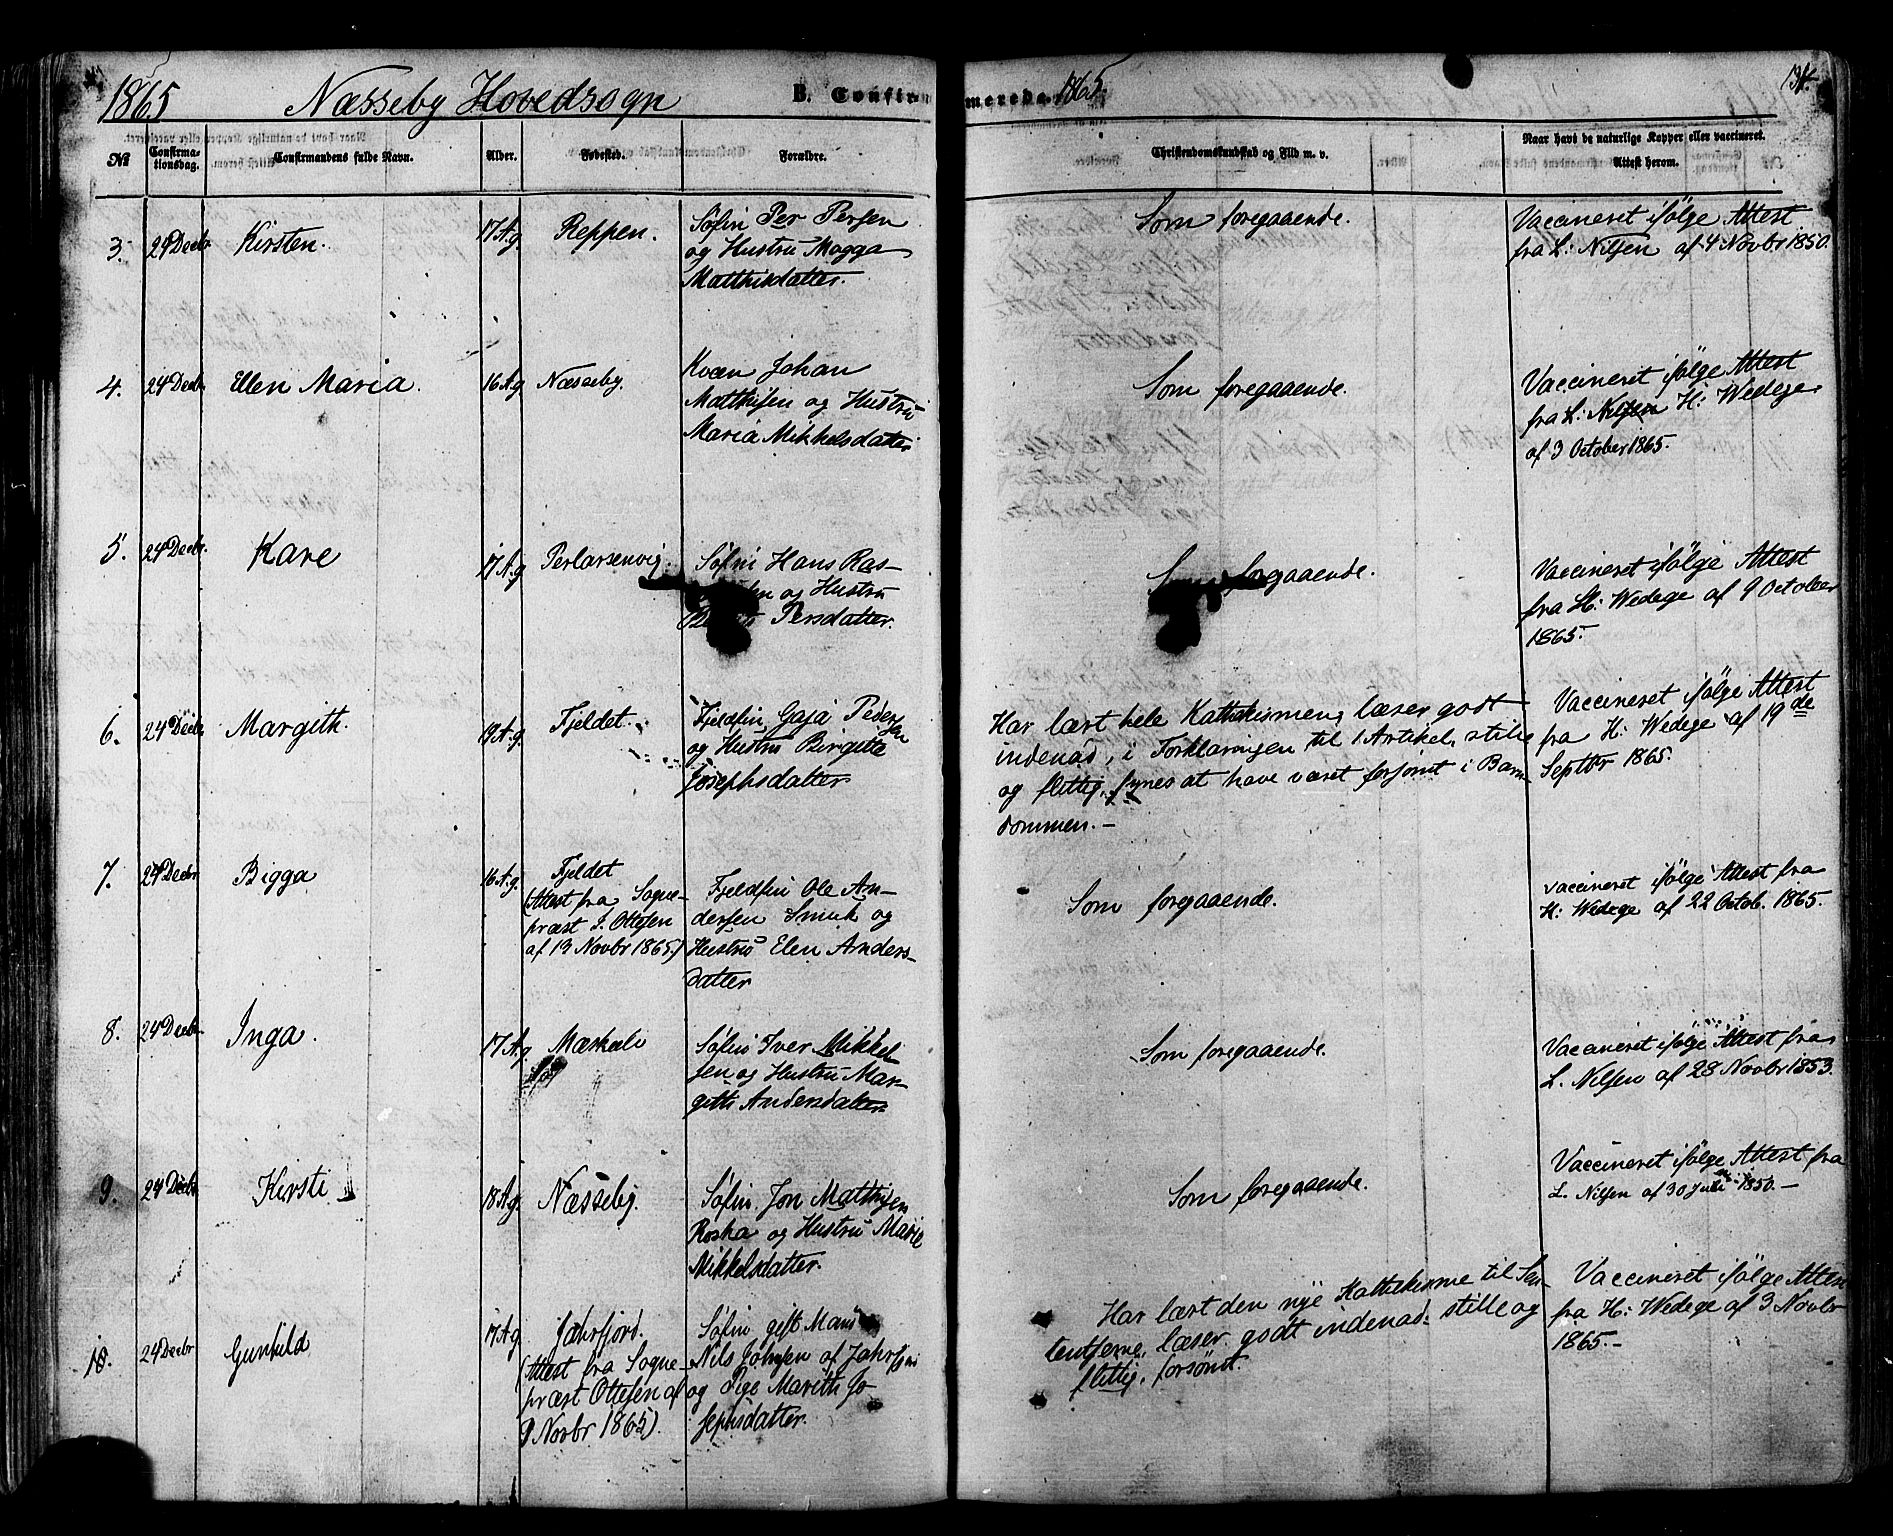 1865 Næsseby Hovedsogn B. Confirmerede. 1865 134.
No
Confirmationsdag.
Confirmandens fulde Navn.
Alder.
Fødested.
Forældre.
Christendomskundskab og Flid m. v.
Naar havt de naturlige Kopper eller vaccineret.
Attest herom.
3. 24 Decbr Kirsten. 17 A. g. Reppen. Søfin Per Persen Som foregaaende. Vaccineret ifølge Attest
og Hustru Magga fra L: Nilsen af 4 Novbr 1850.
Matthisdatter.
4. 24 Decbr Ellen Maria. 16 A. g. Næsseby. Kvæn Johan Som foregaaende. Vaccineret ifølge Attest
Matthisen og Hustru fra L: Nilsen H: Wedege
Maria Mikkelsdatter af 3 October 1865.
5. 24 Decbr. Kare 17 A. g. Perlarsenvig. Søfin Hans Ras- foregaaende. Vaccineret ifølge Attest
og Hustru fra H: Wedege af 9 October
Persdatter. 1865.
6. 24 Decbr Margith. 19 A. g. Fjeldet. Fjeldfin Gaja Pedersen Har lært hele Kathekismen, læser godt Vaccineret ifølge Attest
og Hustru Birgitte indenad, i Forklaringen til 1 Artikel, stille fra H: Wedege af 19de
Josephsdatter og flittig, synes at have været forsømt i Barn- Septbr 1865.
dommen. —
7. 24 Decbr Bigga 16 A. g. Fjeldet Fjeldfin Ole An- Som foregaaende. vaccineret ifølge Attest fra
(Attest fra Sogne- dersen Smuk og H: Wedege af 22 Octob. 1865.
præst J. Ottesen Hustru Elen Anders-
af 13 Novbr 1865) datter
8. 24 Decbr Inga. 17 A. g. Mæskeli Søfin Iver Mikkel Som foregaaende. Vaccineret ifølge Attest fra
sen og Hustru Mar- L. Nilsen af 28 Novbr 1853.
githi Andersdatter
9. 24 Decbr Kirsti 18 A. g. Næsseby. Søfin Jon Matthisen Som foregaaende. Vaccineret ifølge Attest fra
Roska og Hustru Marie L. Nilsen af 30 Juni 1850. —
Mikkelsdatter.
10. 24 Decbr Gunhild 17 A. g. Jahrfjord. Søfin gift Mand Har lært den nye Kathekisme til Sa- Vaccineret ifølge Attest
(Attest fra Sogne- Nils Johnsen af Jahrfjord læser godt indenad. stille og fra H: Wedege af 3 Novbr
præst Ottesen af og Pige Marith Jo flittig, forsømt. 1865. —
9 Novbr 1865). sephsdatter.